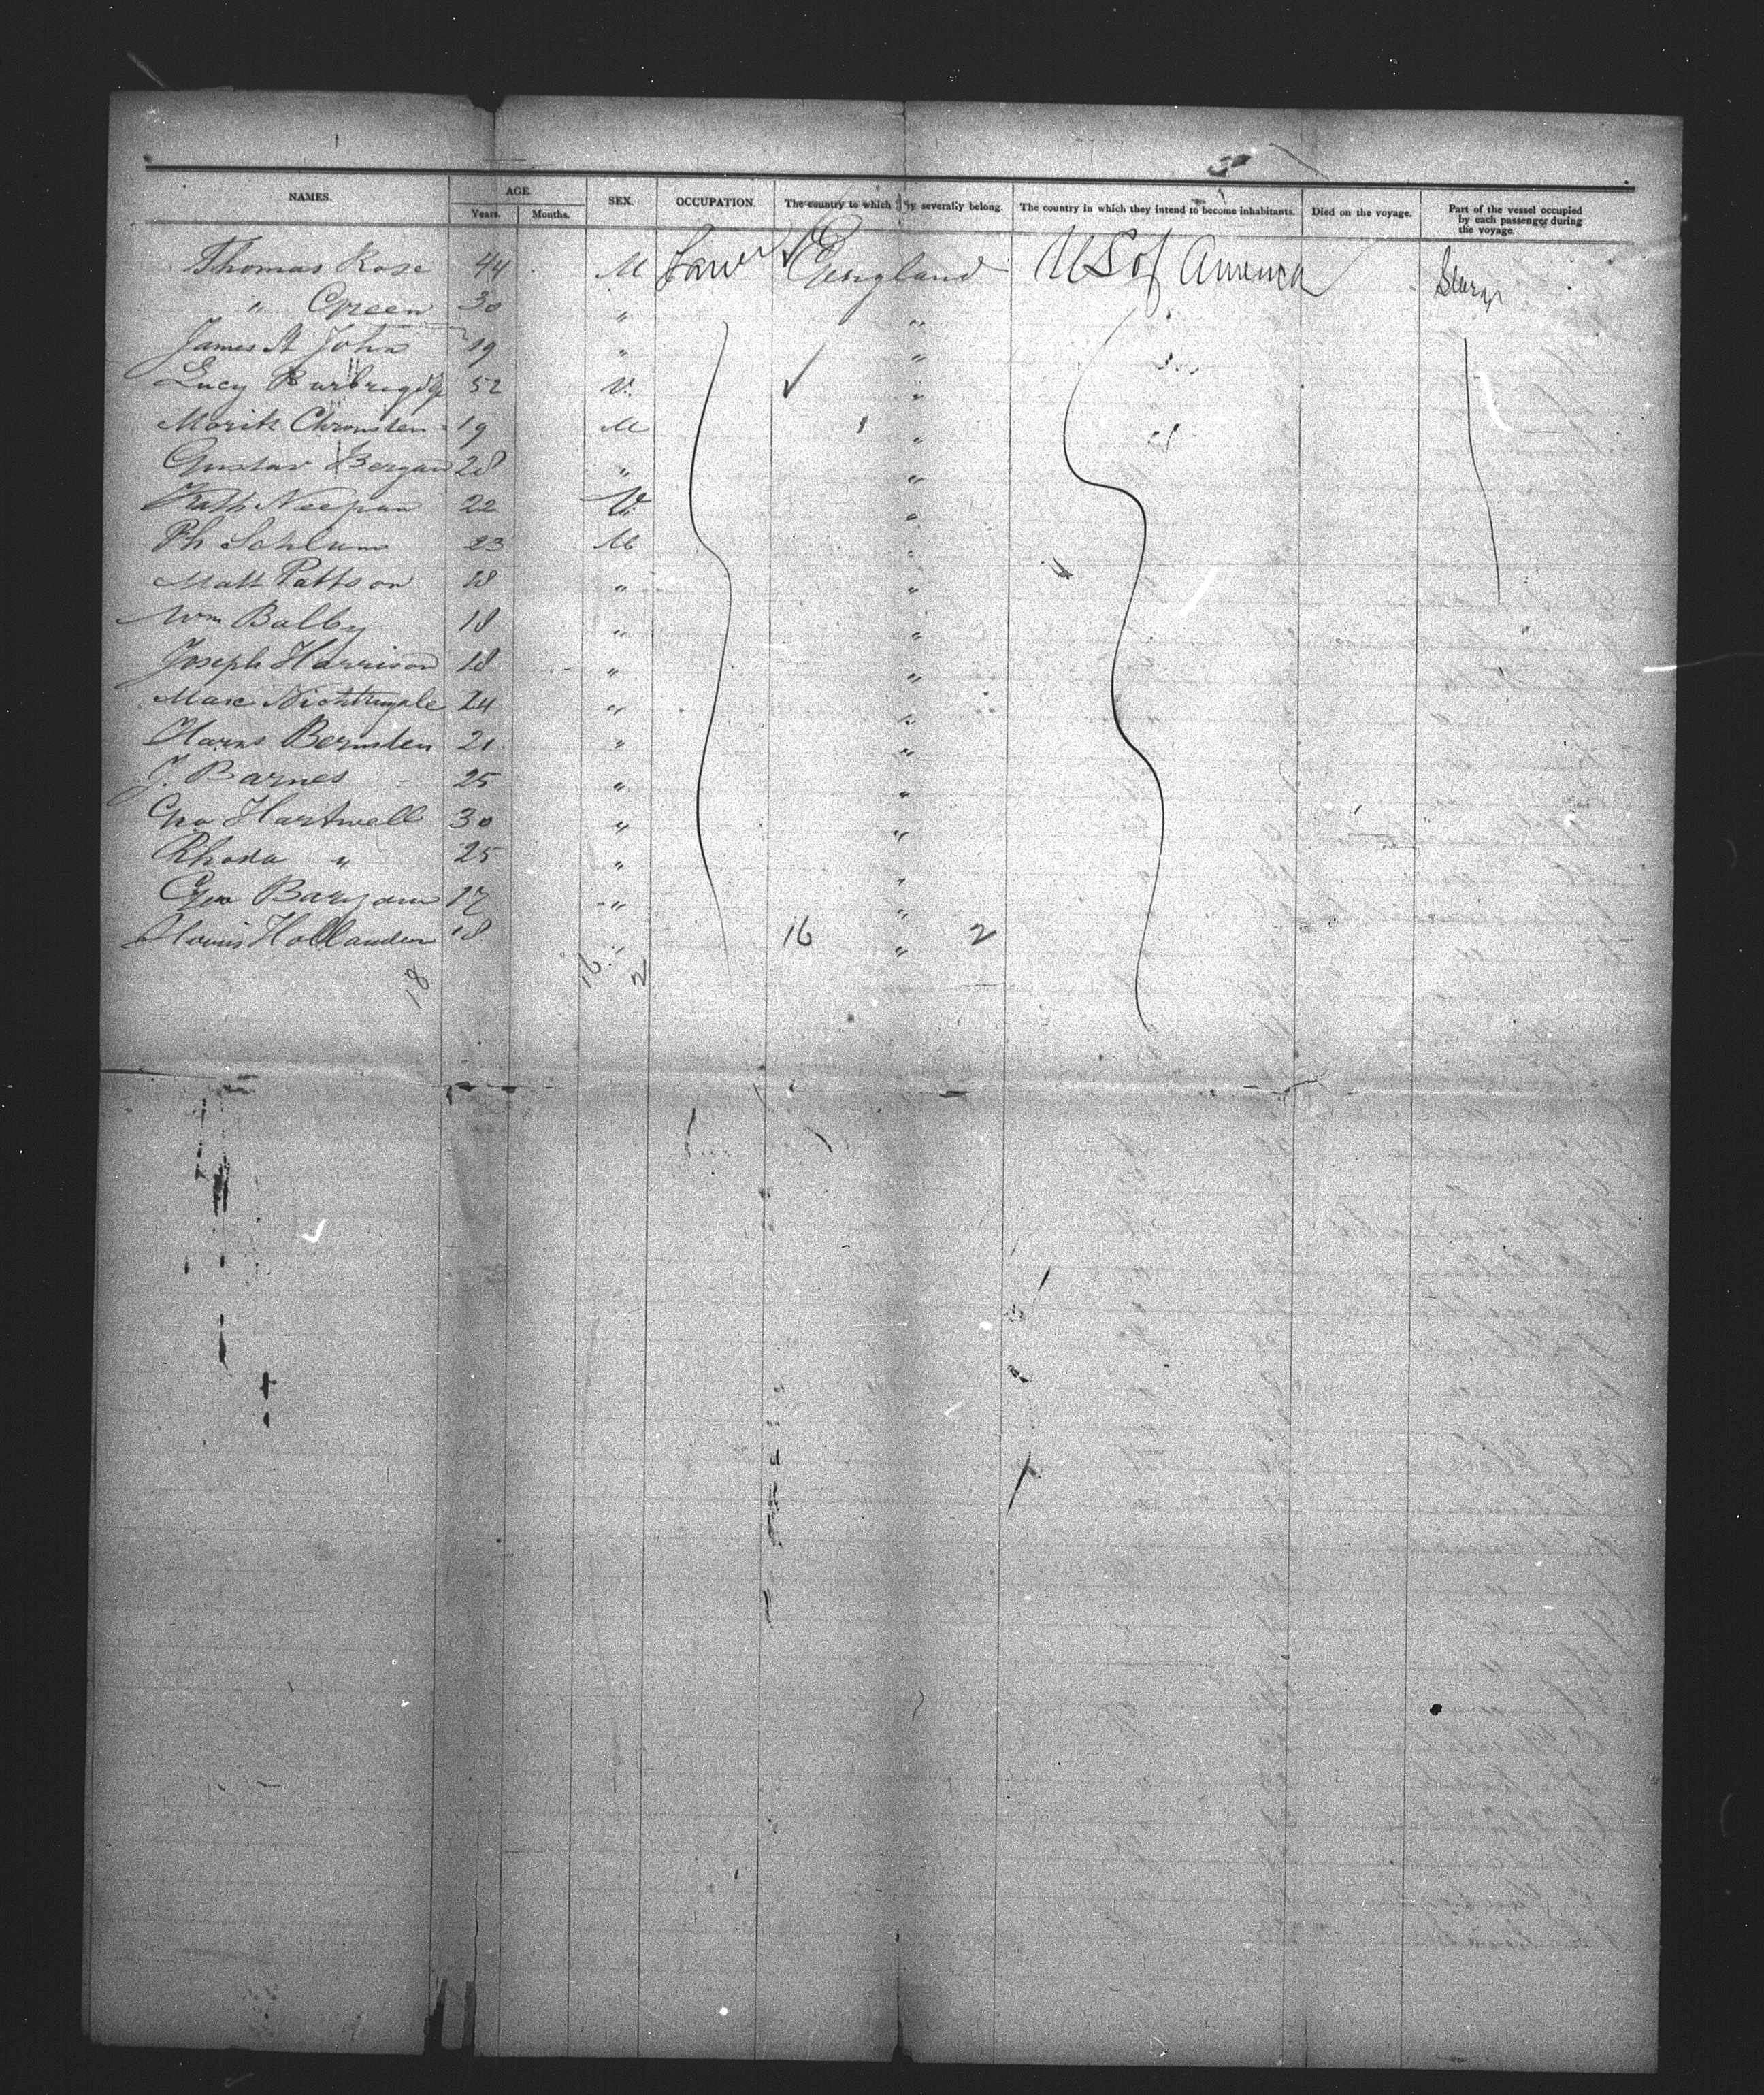 NAMES. AGE. SEX. OCCUPATION. The country to which they severally belong. The country in which they intend to become inhabitants. Died on the voyage. Part of the vessel occupied by each passenger during the voyage.
Years. Months.
Thomas Rose 44 M England U S of America
" Green 30 " "
James St John 19 " "
Lucy 52 "
Moritz 19 M "
Gustav Bergan 28 " "
Kath 22 "
Ph Schlum 23 M "
Matt Pattson 18 " "
Wm Balby 18 " "
Joseph Harrison 18 " "
Marc Nightingale 24 " "
Harns Bernsten 21 " "
J. Barnes 25 " "
Geo Hartwell 30 " "
Rhoda " 25 " "
Geo 17 " "
Hollander 18 " 16 " 2
18 16 2